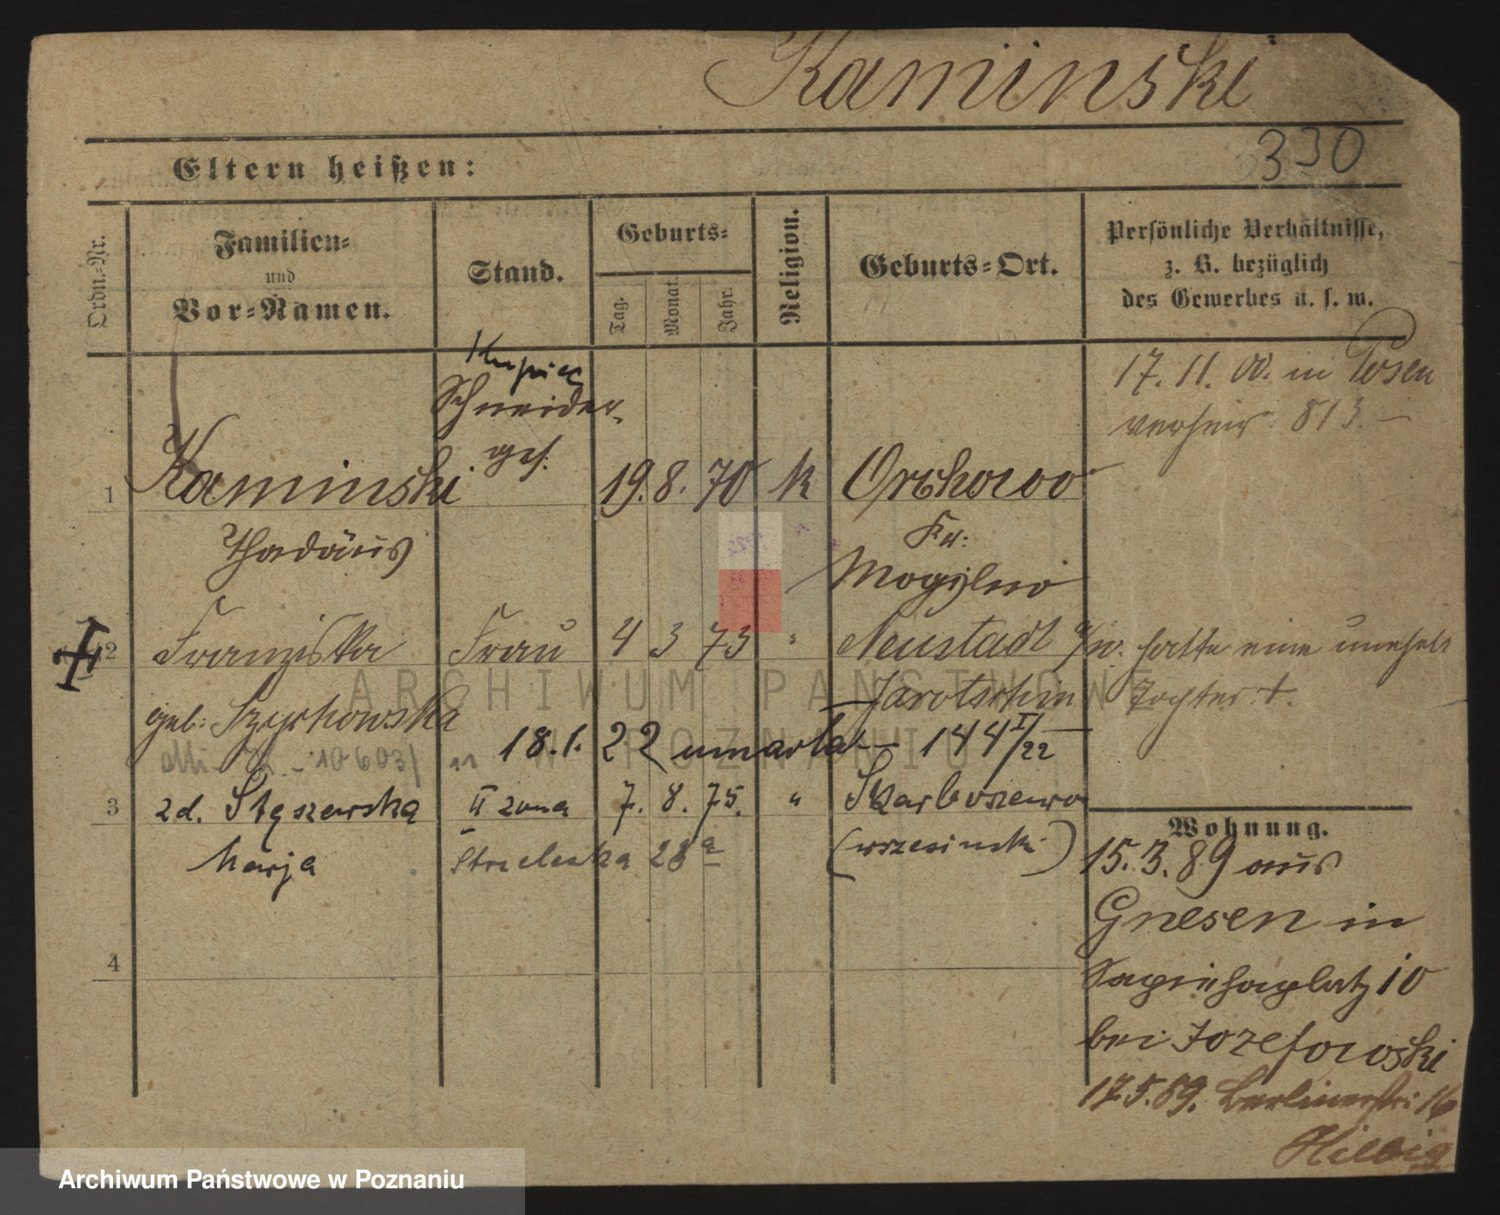 Kaminski
330
Eltern heißen:
Ordn.-Nr.
Familien-
und
Vor-Namen.
Stand.
Geburts-
Tag.
Monat.
Jahr.
Religion.
Geburts-Ort.
Persönliche Verhältnisse,
z. B. bezüglich
des Gewerbes u. s. w.
Kupiec
Schneider
ges.
17. 11. 00. in Posen
verheir. 813.—
1 Kaminski 19. 8. 70 k Orchowo
Thadäus
Kr:
Mogilno
2 Franziska Frau 4 3 73 " Neustadt a/W. hatte eine unehel
geb: Szyrkowska Jarotschin Tochter †.
18. 1. 22 umarła — 144 I/22
3 zd. Styszewska II żona 7. 8. 75. " Skarboszewo
Marja Strzelecka 28a (wrzesiński)
4
Wohnung.
15. 3. 89 aus
Gnesen in
Sapiehaplatz 10
bei Jozefowski
17.5.89. Berlinerstr: 16
Hilbig
ARCHIWUM PAŃSTWOWE
W POZNANIU
Archiwum Państwowe w Poznaniu